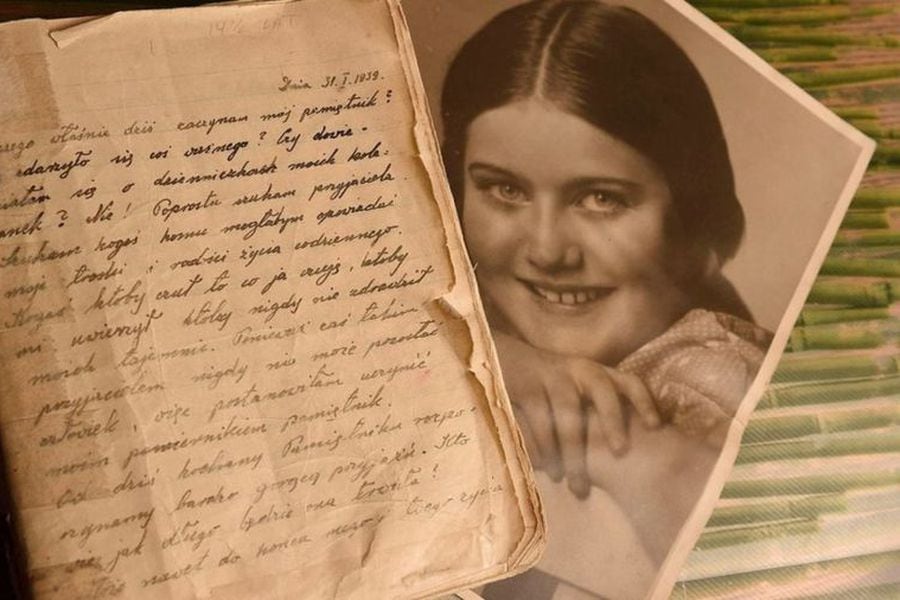 14½ LAT
Dnia 31.I.1939.
właśnie dziś zaczynam mój pamiętnik?
zdarzyło się coś ważnego? Czy dowie-
działam się o dzienniczkach moich kole-
żanek? Nie! Poprostu szukam przyjaciela.
Szukam kogoś komu mogłabym opowiadać
moje troski i radości życia codziennego.
Kogoś ktoby czuł to co ja czuję, ktoby
mi uwierzył ktoby nigdy nie zdradził
moich tajemnic. Ponieważ takim
przyjacielem nigdy nie może pozostać
człowiek, więc postanowiłam uczynić
moim powiernikiem pamiętnik.
Od dziś kochany Pamiętniku rozpo-
czynamy bardzo gorącą przyjaźń. Kto
wie jak długo będzie ona trwała?
nawet do końca mego życia